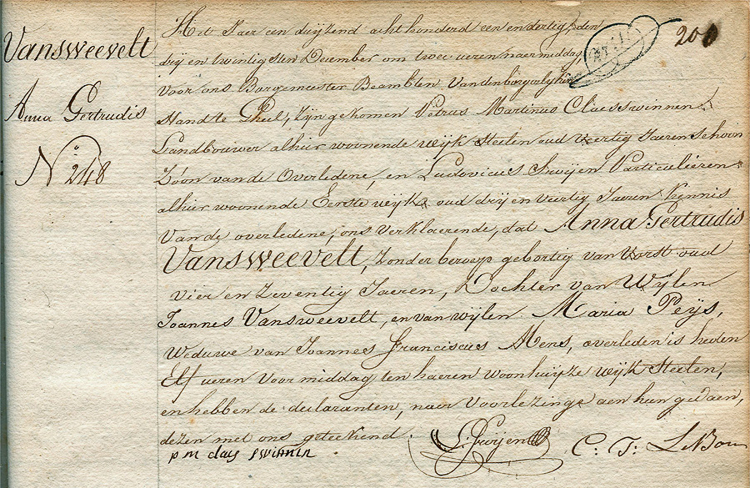 Vansweevelt
Anna Gertrudis
N° 248
200
Het Jaer een duijzend acht honderd een en dertig, den
drij en twintigsten December om twee ueren naermiddag
voor ons Borgemeester Beambten Vanden burgerlyken
Stand te Gheel, zijn gekomen Petrus Martinus Claesswinnen
Landbouwer alhier woonende wyk Steelen oud veertig Jaeren Schoon
Zoon van de Overledene, en Ludovicus Swijen Particulieren
alhier woonende Eerste wyk, oud drij en veertig Jaeren Kennis
Van de overledene; ons verklaerende, dat Anna Gertrudis
Vansweevelt, zonder beroep gebortig van Vorst oud
vier en Zeventig Jaeren, Dochter van Wylen
Joannes Vansweevelt, en van wylen Maria Peÿs,
Weduwe van Joannes franciscus Mens, overleden is heden
Elf ueren voor middag ten haeren woonhuijze wyk Steelen,
en hebben de declaranten, naer Voorlezinge aen hun gedaen,
dezen met ons geteekend.
p m clays swinnen
L. Swijen
C: T: LeBon